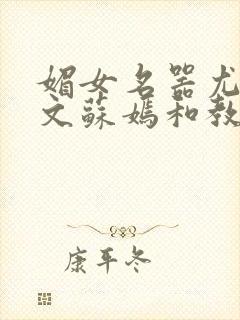 媚女名器尤
文蘇媽和教
康平冬